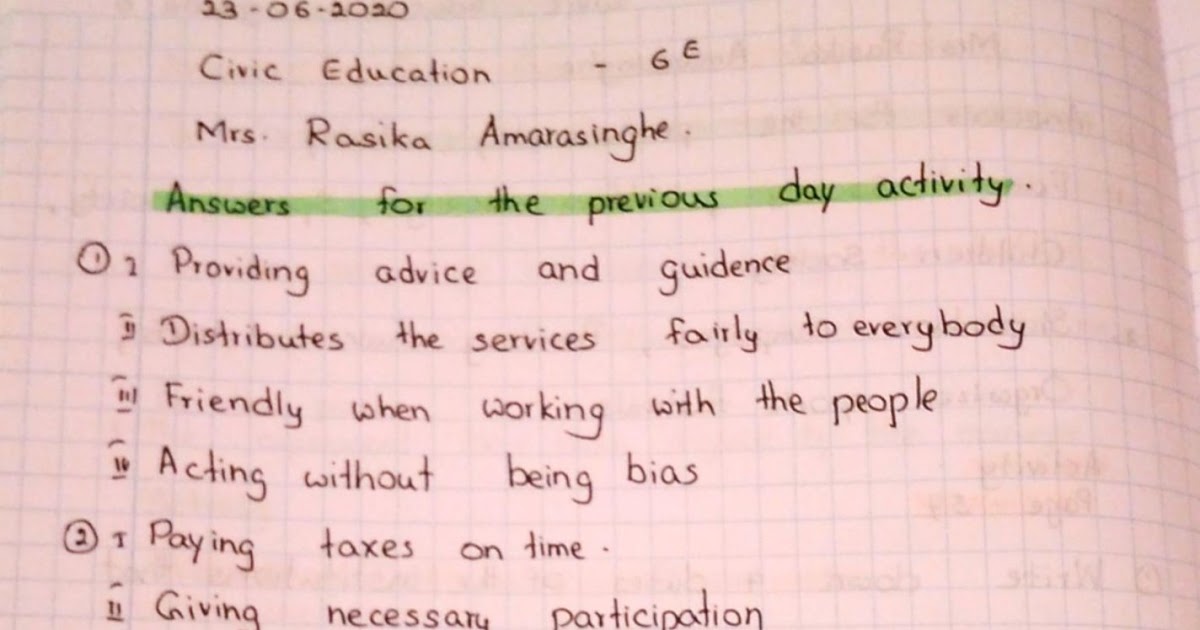 23-06-2020
Civic Education - 6 E
Mrs. Rasika Amarasinghe.
Answers for the previous day activity.
① I Providing advice and guidence
II Distributes the services fairly to everybody
III Friendly when working with the people
IV Acting without being bias
② I Paying taxes on time.
II Giving necessary participation